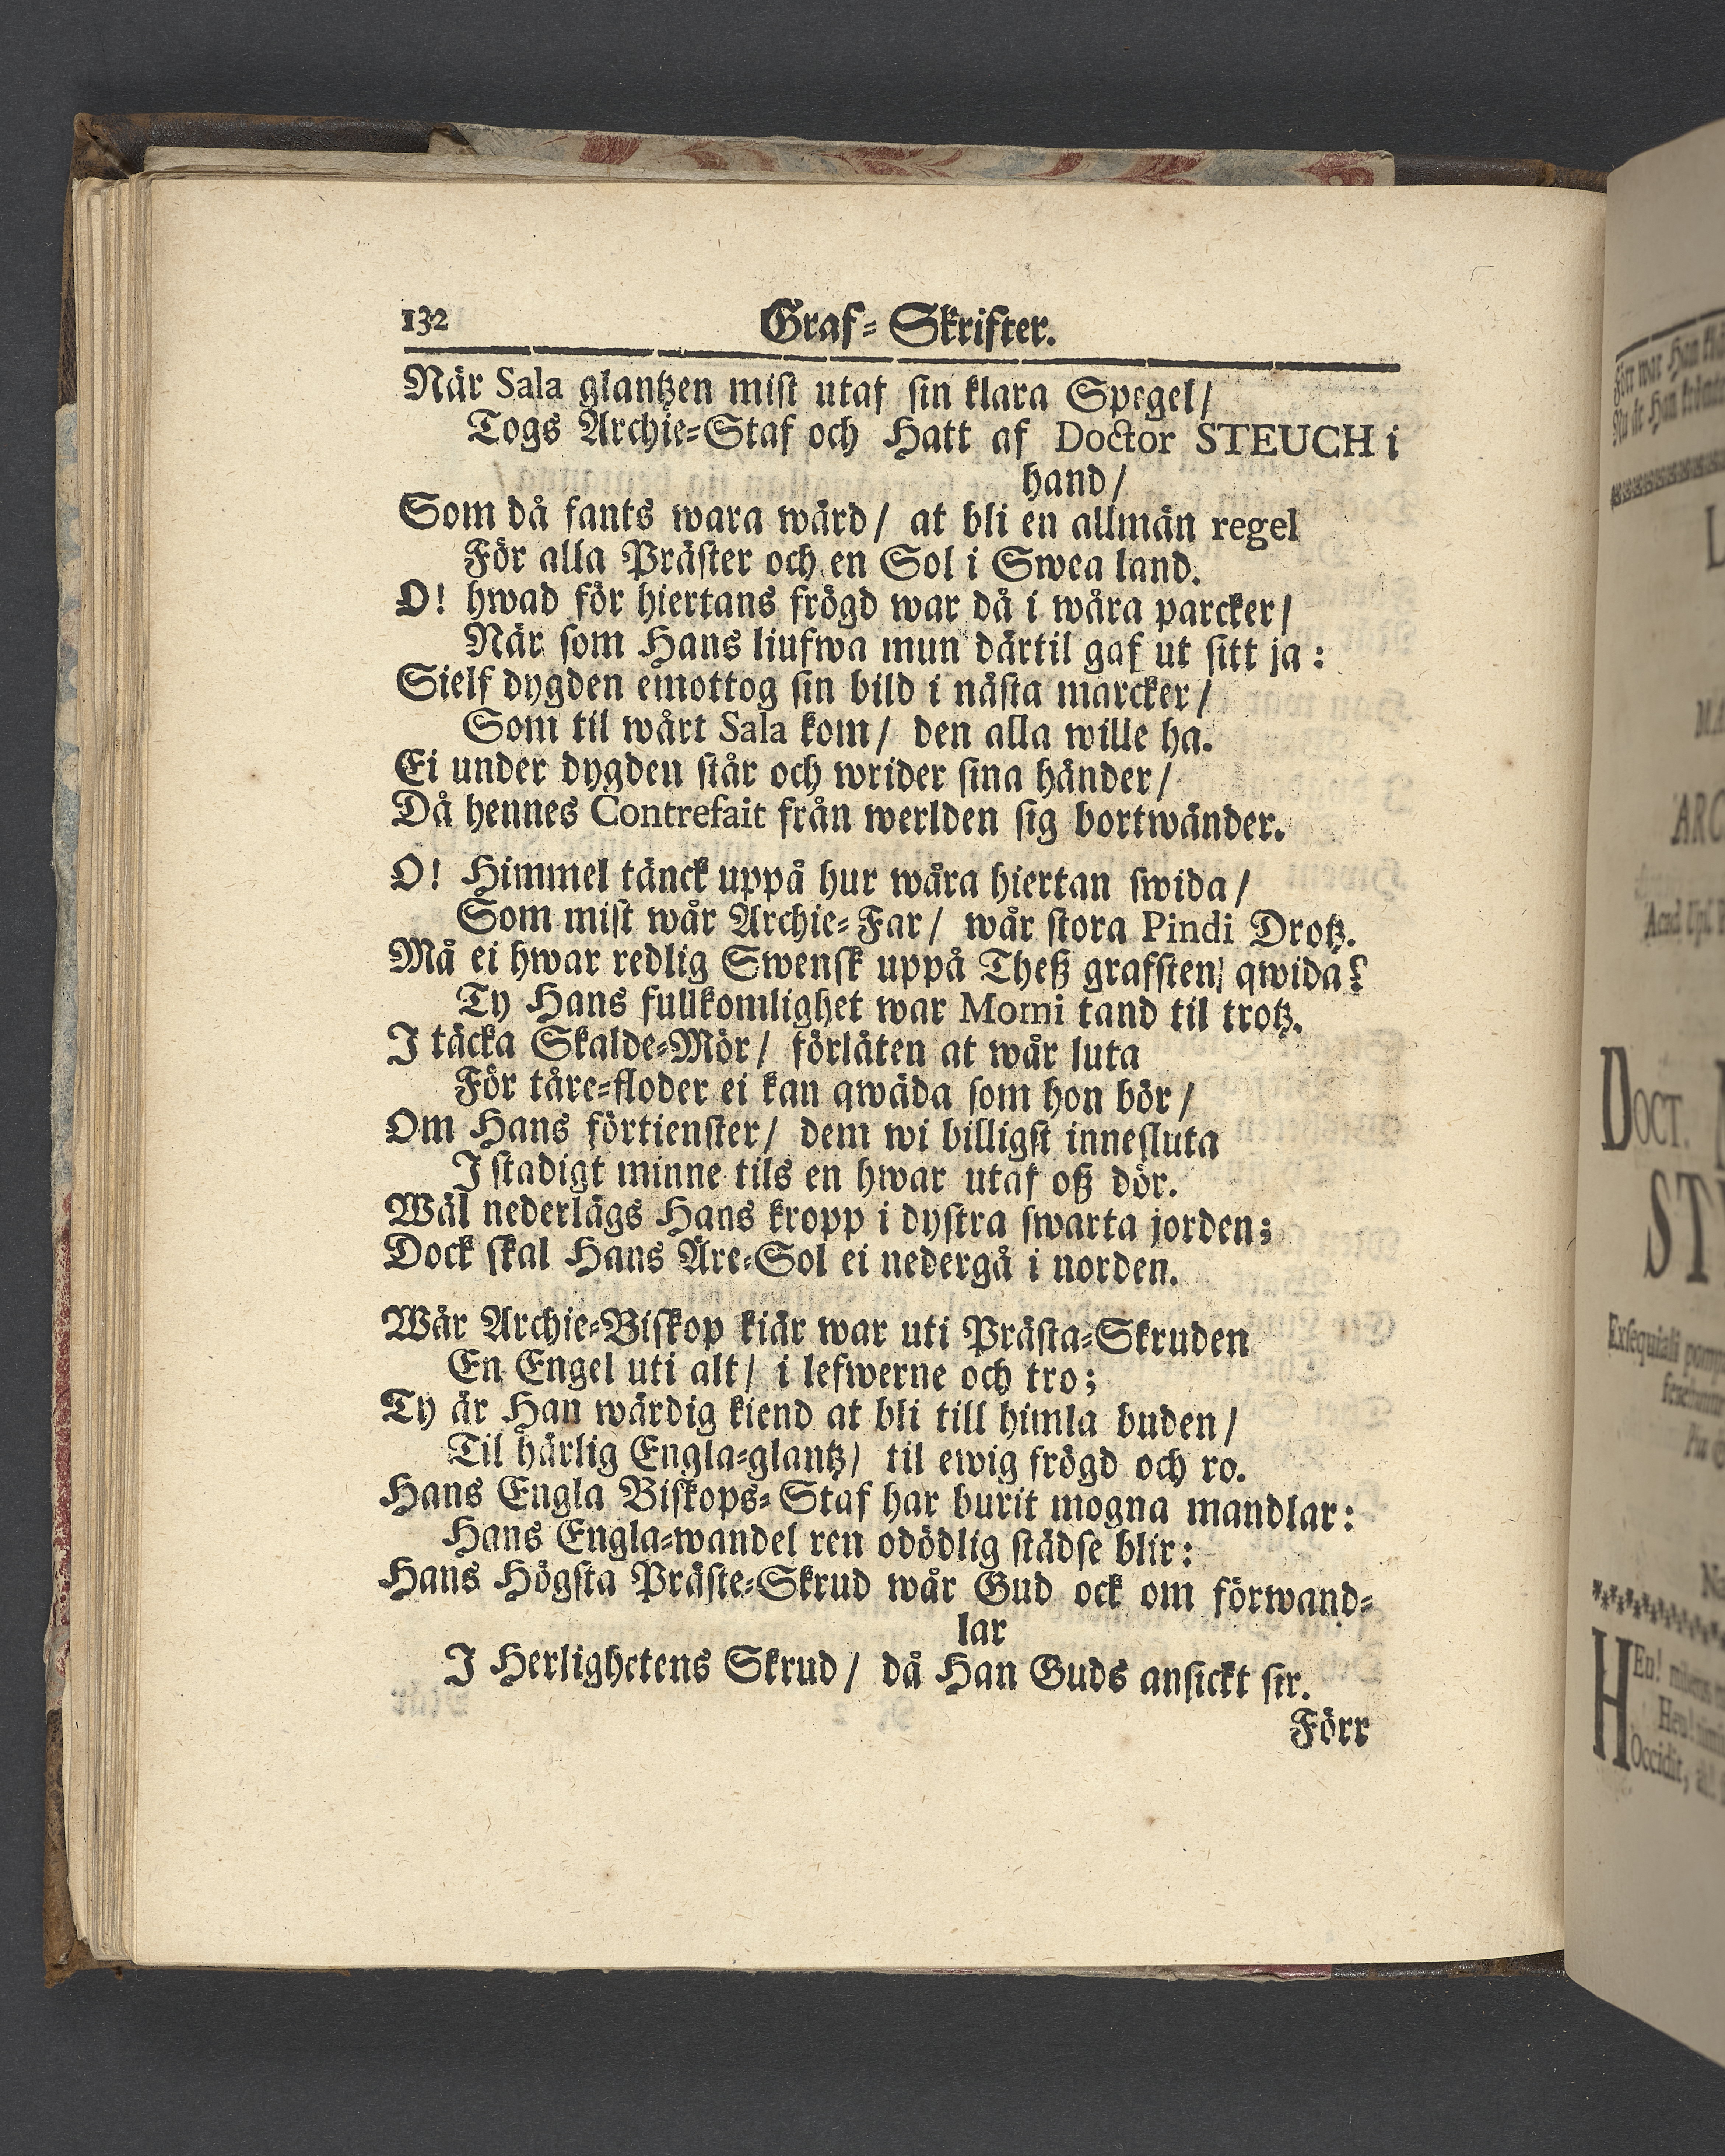 132 Graf-Skrifter.
När Sala glantzen mist utaf sin klara Spegel/
Togs Archie-Staf och Hatt af Doctor STEUCH i
hand/
Som då fants wara wärd/ at bli en allmän regel
För alla Präster och en Sol i Swea land.
O! hwad för hiertans frögd war då i wåra parcker/
När som Hans liufwa mun därtil gaf ut sitt ja:
Sielf dygden emottog sin bild i nästa marcker/
Som til wårt Sala kom/ den alla wille ha.
Ei under dygden står och wrider sina händer/
Då hennes Contrefait från werlden sig bortwänder.
O! Himmel tänck uppå hur wåra hiertan swida/
Som mist wår Archie-Far/ wår stora Pindi Drotz.
Må ei hwar redlig Swensk uppå Theß grafsten qwida?
Ty Hans fullkomlighet war Momi tand til trotz.
I täcka Skalde-Mör/ förläten at wår luta
För tåre-floder ei kan qwäda som hon bör/
Om Hans förtienster/ dem wi billigst innesluta
I stadigt minne tils en hwar utaf oß dör.
Wäl nederlägs Hans kropp i dystra swarta jorden;
Dock skal Hans Äre-Sol ei nedergå i norden.
Wår Archie-Biskop kiär war uti Prästa-Skruden
En Engel uti alt/ i lefwerne och tro;
Ty är Han wärdig kiend at bli till himla buden/
Til härlig Engla-glantz/ til ewig frögd och ro.
Hans Engla Biskops-Staf har burit mogna mandlar:
Hans Engla-wandel ren odödlig städse blir:
Hans Högsta Präste-Skrud wår Gud ock om förwand-
lar
I Herlighetens Skrud/ då Han Guds ansickt sir.
Förr
Förr war Han
Nu är Han
DOCT.
Exsequiali
HEu!
Heu!
Occidit,